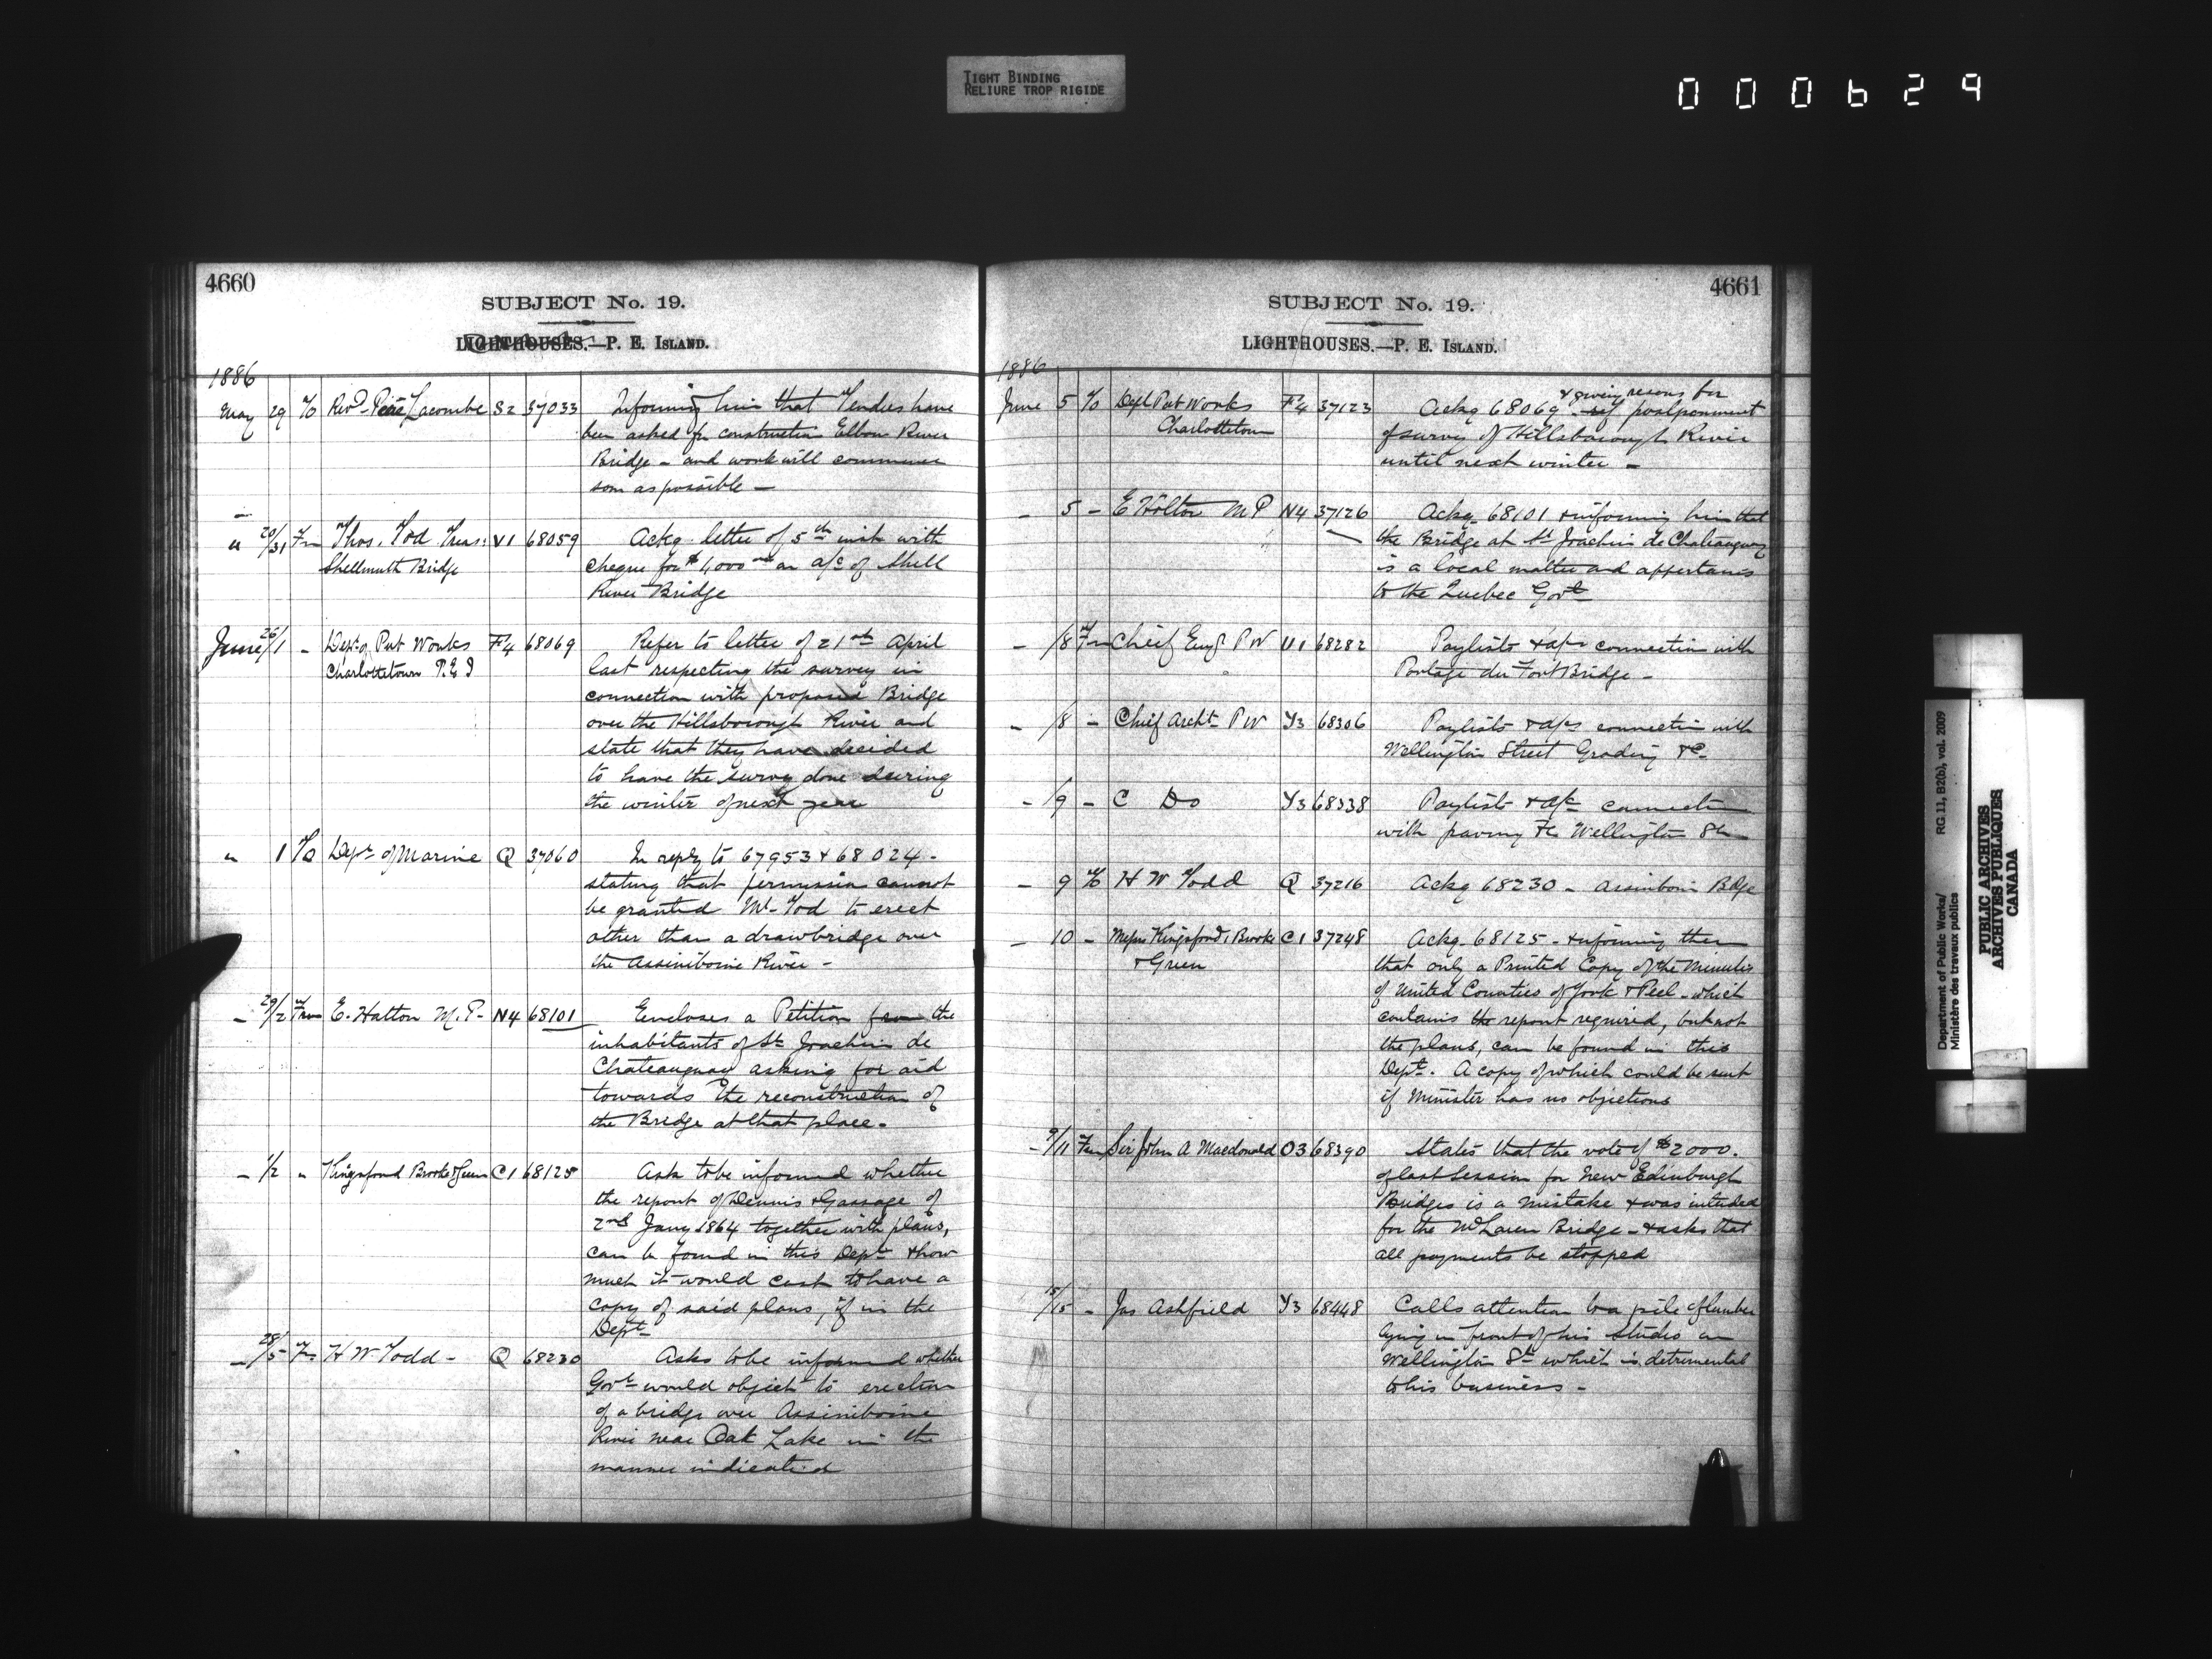 TIGHT BINDING
RELIURE TROP RIGIDE
000629
4660
SUBJECT No. 19.
LIGHTHOUSES.—P. E. ISLAND.
1886
May 29 To Revd Père Lacombe S2 37033 Informing him that Tenders have
been asked for construction Elbow River
Bridge - and work will commence
soon as possible -
" 20/31 Fm Thos. Tod Treas: V1 68059 Ackg letter of 5th inst with
Shellmuth Bridge cheque for $4000 on a/c of Shell
River Bridge
June 26/1 - Dept of Pub Works F4 68069 Refer to letter of 21st April
Charlottetown P.E.I last respecting the survey in
connection with proposed Bridge
over the Hillsborough River and
state that they have decided
to have the survey done during
the winter of next year
" 1 To Dept of Marine Q 37060 In reply to 67953 & 68024 -
stating that permission cannot
be granted Mr Tod to erect
other than a drawbridge over
the Assiniboine River -
- 29/2 From E. Halton M.P- N4 68101 Encloses a Petition from the
inhabitants of St Joachim de
Chateauguay asking for aid
towards the reconstruction of
the Bridge at that place -
- 1/2 " Kingsford Brooke & Green C1 68125 Ask to be informed whether
the report of Dennis & Gassage of
2nd Jany 1864 together with plans,
can be found in this Dept & how
much it would cost to have a
copy of said plans, if in the
Dept
- 28/5 Fm H W Todd - Q 68230 Asks to be informed whether
Govt would object to erection
of a bridge over Assiniboine
River near Oak Lake in the
manner indicated
4661
SUBJECT No. 19.
LIGHTHOUSES.—P. E. ISLAND.
1886
& giving reasons for
June 5 To Dept Pub Works F4 37123 Ackg 68069 - postponement
Charlottetown of survey of Hillsborough River
until next winter -
- 5 - E Holton M P N4 37126 Ackg 68101 & informing him that
the Bridge at St Joachim de Chateauguay
is a local matter and appertains
to the Quebec Govt
- /8 Fm Chief Engr P W U1 68282 Paylists & a/cs connection with
Portage du Fort Bridge -
- /8 - Chief Archt P W Y3 68306 Paylists & a/cs connection with
Wellington Street Grading &c
- /9 - C Do Y3 68338 Paylist & a/c connection
with paving &c Wellington St
- 9 To H W Todd Q 37216 Ackg 68230 - Assiniboin Bdge
- 10 - Messrs Kingsford, Brooke C1 37248 Ackg 68125 - & informing them
& Green that only a Printed Copy of the Minutes
of United Counties of York & Peel - which
contains the report required, but not
the plans, can be found in this
Dept. A copy of which could be sent
if Minister has no objections
- 9/11 Fm Sir John A Macdonald O3 68390 States that the vote of $2000.
of last Session for New Edinburgh
Bridges is a mistake & was intended
for the McLaren Bridge - & asks that
all payments be stopped
15/15 - Jas Ashfield Y3 68448 Calls attention to a pile of lumber
lying in front of his studio on
Wellington St which is detrimental
to his business -
Department of Public Works/ RG 11, B2(b), vol. 2009
Ministère des travaux publics
PUBLIC ARCHIVES
ARCHIVES PUBLIQUES
CANADA